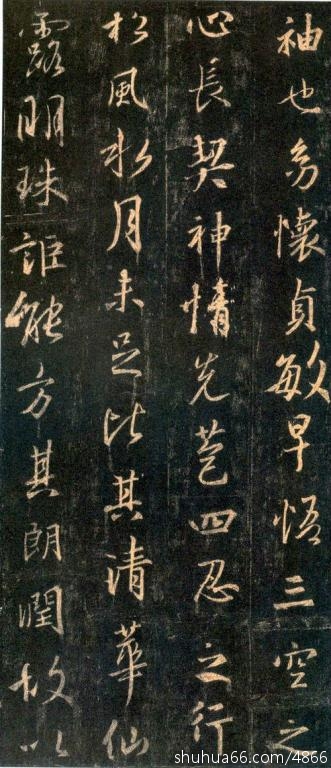 袖也幼懷貞敏早悟三空之
心長契神情先苞四忍之行
松風水月未足比其清華仙
露明珠詎能方其朗潤故以
shuhua66.com/4866